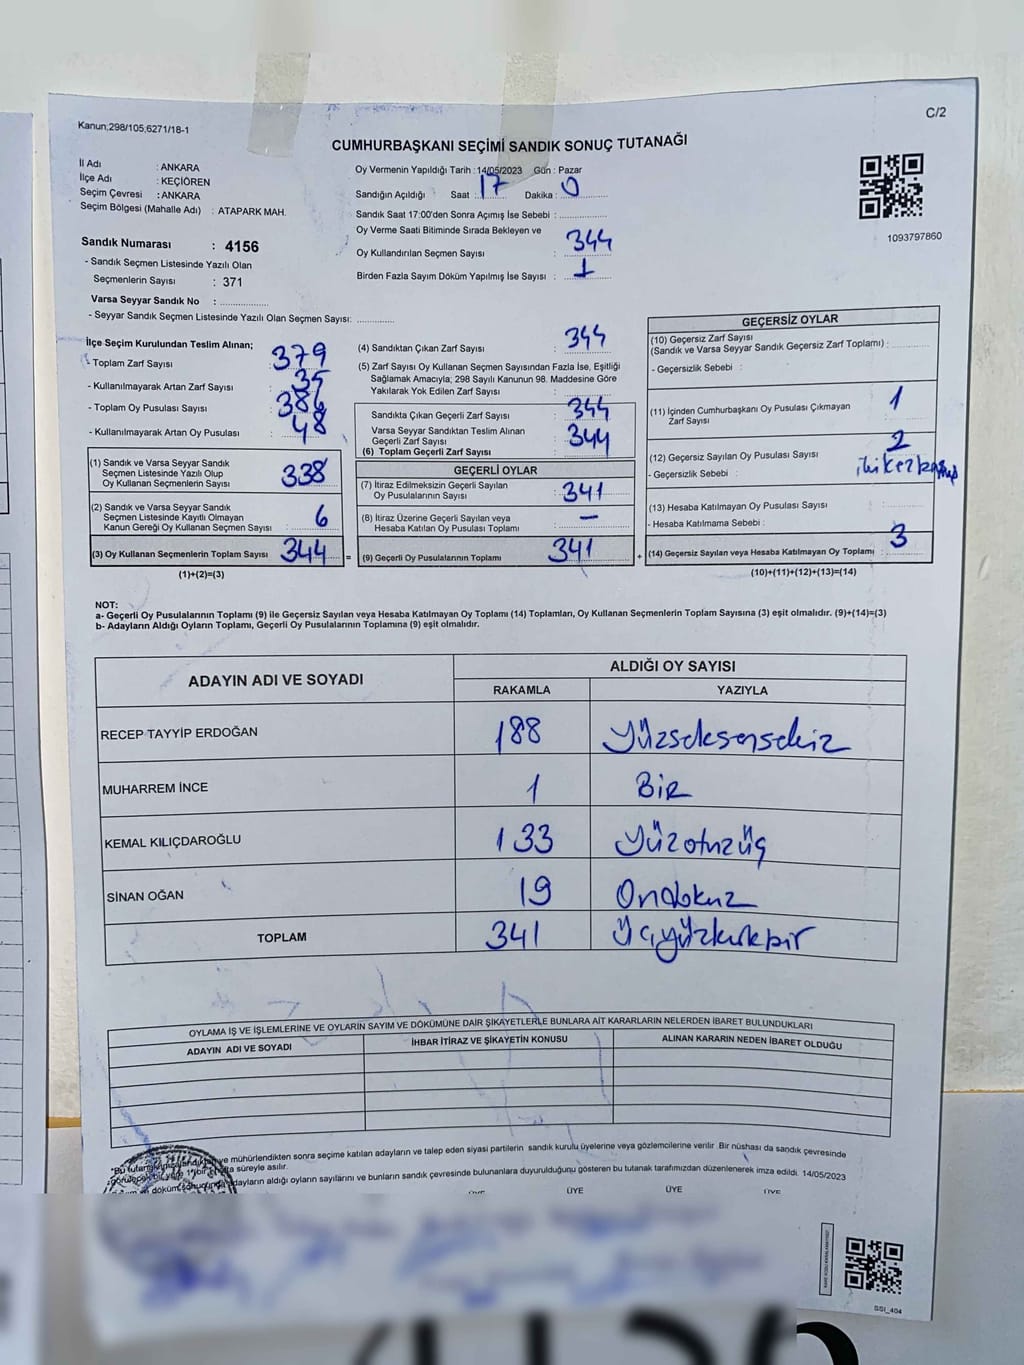 C/2
Kanun;298/105,6271/18-1
CUMHURBAŞKANI SEÇİMİ SANDIK SONUÇ TUTANAĞI
İl Adı : ANKARA
İlçe Adı : KEÇİÖREN
Seçim Çevresi : ANKARA
Seçim Bölgesi (Mahalle Adı) : ATAPARK MAH.
Sandık Numarası : 4156
- Sandık Seçmen Listesinde Yazılı Olan
Seçmenlerin Sayısı : 371
Varsa Seyyar Sandık No : ..............
- Seyyar Sandık Seçmen Listesinde Yazılı Olan Seçmen Sayısı: ............
Oy Vermenin Yapıldığı Tarih : 14/05/2023 Gün : Pazar
Sandığın Açıldığı Saat : 17 Dakika : 0
Sandık Saat 17:00'den Sonra Açımış İse Sebebi : ..............
Oy Verme Saati Bitiminde Sırada Bekleyen ve
Oy Kullandırılan Seçmen Sayısı : 344
Birden Fazla Sayım Döküm Yapılmış İse Sayısı : 1
1093797860
İlçe Seçim Kurulundan Teslim Alınan;
- Toplam Zarf Sayısı : 379
- Kullanılmayarak Artan Zarf Sayısı : 35
- Toplam Oy Pusulası Sayısı : 386
- Kullanılmayarak Artan Oy Pusulası : 48
(1) Sandık ve Varsa Seyyar Sandık
Seçmen Listesinde Yazılı Olup
Oy Kullanan Seçmenlerin Sayısı : 338
(2) Sandık ve Varsa Seyyar Sandık
Seçmen Listesinde Kayıtlı Olmayan
Kanun Gereği Oy Kullanan Seçmen Sayısı : 6
(3) Oy Kullanan Seçmenlerin Toplam Sayısı : 344 =
(1)+(2)=(3)
(4) Sandıktan Çıkan Zarf Sayısı : 344
(5) Zarf Sayısı Oy Kullanan Seçmen Sayısından Fazla İse, Eşitliği
Sağlamak Amacıyla; 298 Sayılı Kanunun 98. Maddesine Göre
Yakılarak Yok Edilen Zarf Sayısı :
Sandıkta Çıkan Geçerli Zarf Sayısı : 344
Varsa Seyyar Sandıktan Teslim Alınan
Geçerli Zarf Sayısı
(6) Toplam Geçerli Zarf Sayısı : 344
GEÇERLİ OYLAR
(7) İtiraz Edilmeksizin Geçerli Sayılan
Oy Pusulalarının Sayısı : 341
(8) İtiraz Üzerine Geçerli Sayılan veya
Hesaba Katılan Oy Pusulası Toplamı : –
(9) Geçerli Oy Pusulalarının Toplamı : 341 +
GEÇERSİZ OYLAR
(10) Geçersiz Zarf Sayısı
(Sandık ve Varsa Seyyar Sandık Geçersiz Zarf Toplamı) :
- Geçersizlik Sebebi :
(11) İçinden Cumhurbaşkanı Oy Pusulası Çıkmayan
Zarf Sayısı 1
(12) Geçersiz Sayılan Oy Pusulası Sayısı : 2
- Geçersizlik Sebebi :
(13) Hesaba Katılmayan Oy Pusulası Sayısı :
- Hesaba Katılmama Sebebi :
(14) Geçersiz Sayılan veya Hesaba Katılmayan Oy Toplamı : 3
(10)+(11)+(12)+(13)=(14)
NOT:
a- Geçerli Oy Pusulalarının Toplamı (9) ile Geçersiz Sayılan veya Hesaba Katılmayan Oy Toplamı (14) Toplamları, Oy Kullanan Seçmenlerin Toplam Sayısına (3) eşit olmalıdır. (9)+(14)=(3)
b- Adayların Aldığı Oyların Toplamı, Geçerli Oy Pusulalarının Toplamına (9) eşit olmalıdır.
ADAYIN ADI VE SOYADI ALDIĞI OY SAYISI
RAKAMLA YAZIYLA
RECEP TAYYİP ERDOĞAN 188 Yüzseksensekiz
MUHARREM İNCE 1 Bir
KEMAL KILIÇDAROĞLU 133 Yüzotuzüç
SİNAN OĞAN 19 Ondokuz
TOPLAM 341 Üçyüzkırkbir
OYLAMA İŞ VE İŞLEMLERİNE VE OYLARIN SAYIM VE DÖKÜMÜNE DAİR ŞİKAYETLERLE BUNLARA AİT KARARLARIN NELERDEN İBARET BULUNDUKLARI
ADAYIN ADI VE SOYADI İHBAR İTİRAZ VE ŞİKAYETİN KONUSU ALINAN KARARIN NEDEN İBARET OLDUĞU
mühürlendikten sonra seçime katılan adayların ve talep eden siyasi partilerin sandık kurulu üyelerine veya gözlemcilerine verilir .Bir nüshası da sandık çevresinde
süreyle asılır.
adayların aldığı oyların sayılarını ve bunların sandık çevresinde bulunanlara duyurulduğunu gösteren bu tutanak tarafımızdan düzenlenerek imza edildi. 14/05/2023
ÜYE ÜYE ÜYE ÜYE
SSI_404